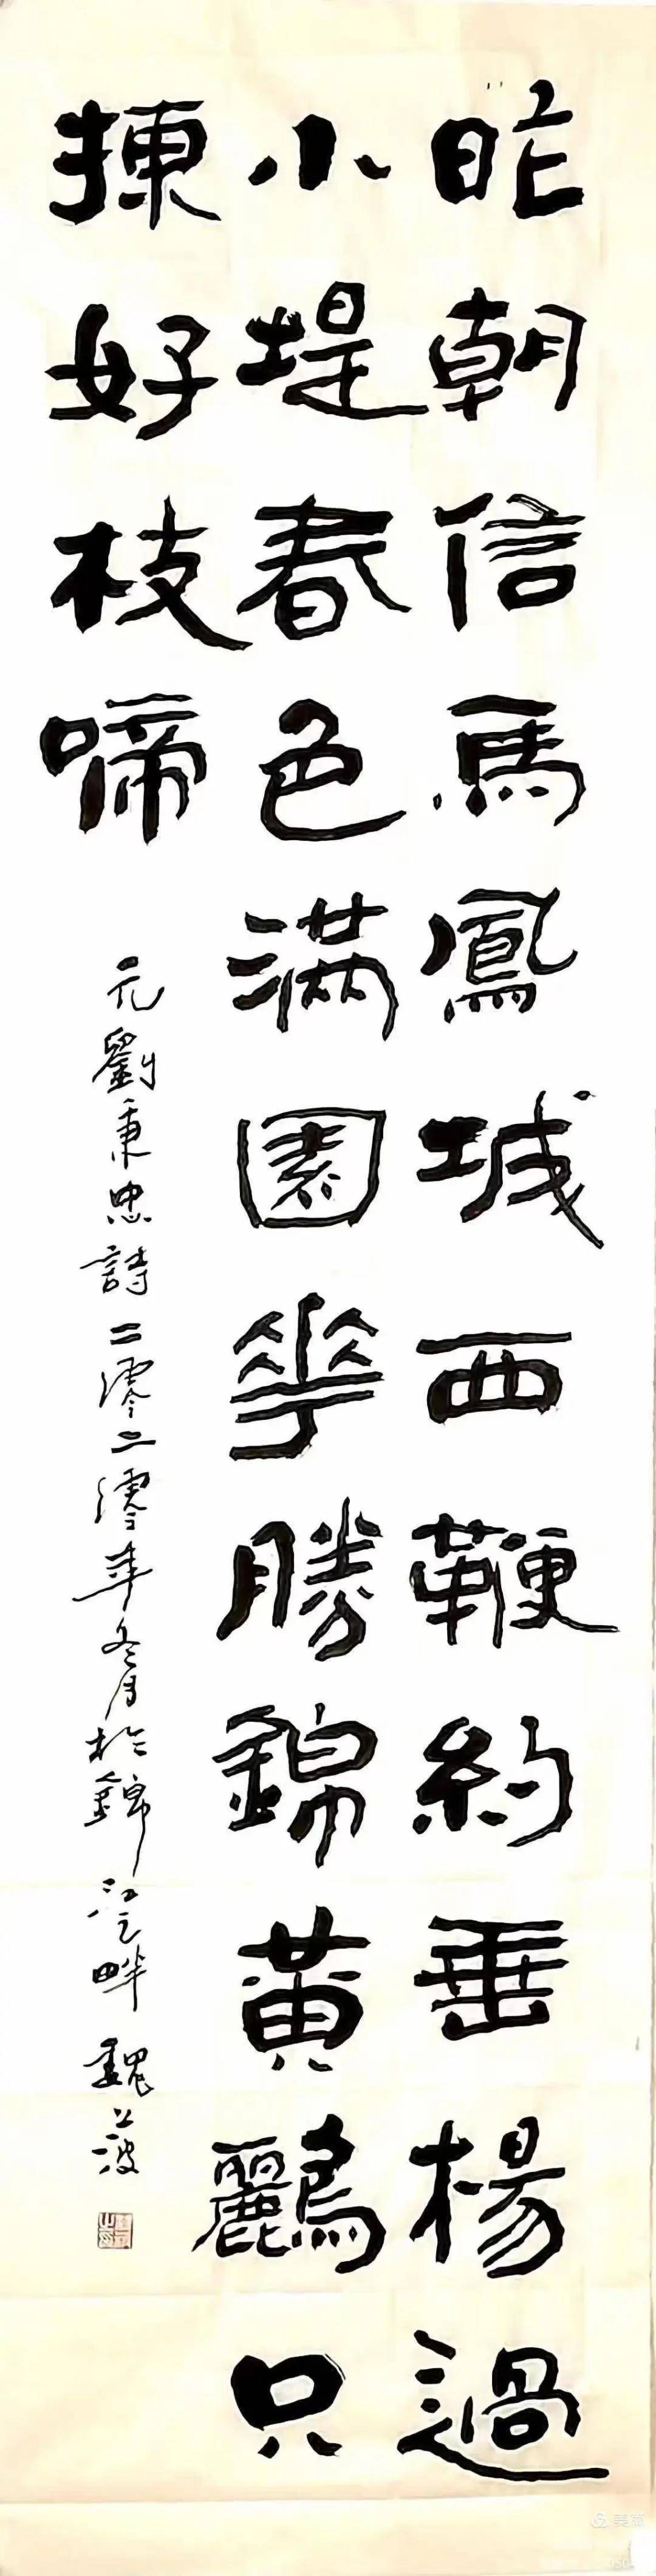 昨朝信馬鳳城西鞭約垂楊過
小堤春色滿園花勝錦黃鸝只
揀好枝啼
元劉秉忠詩二零二零年冬月於錦江之畔 魏
美篇